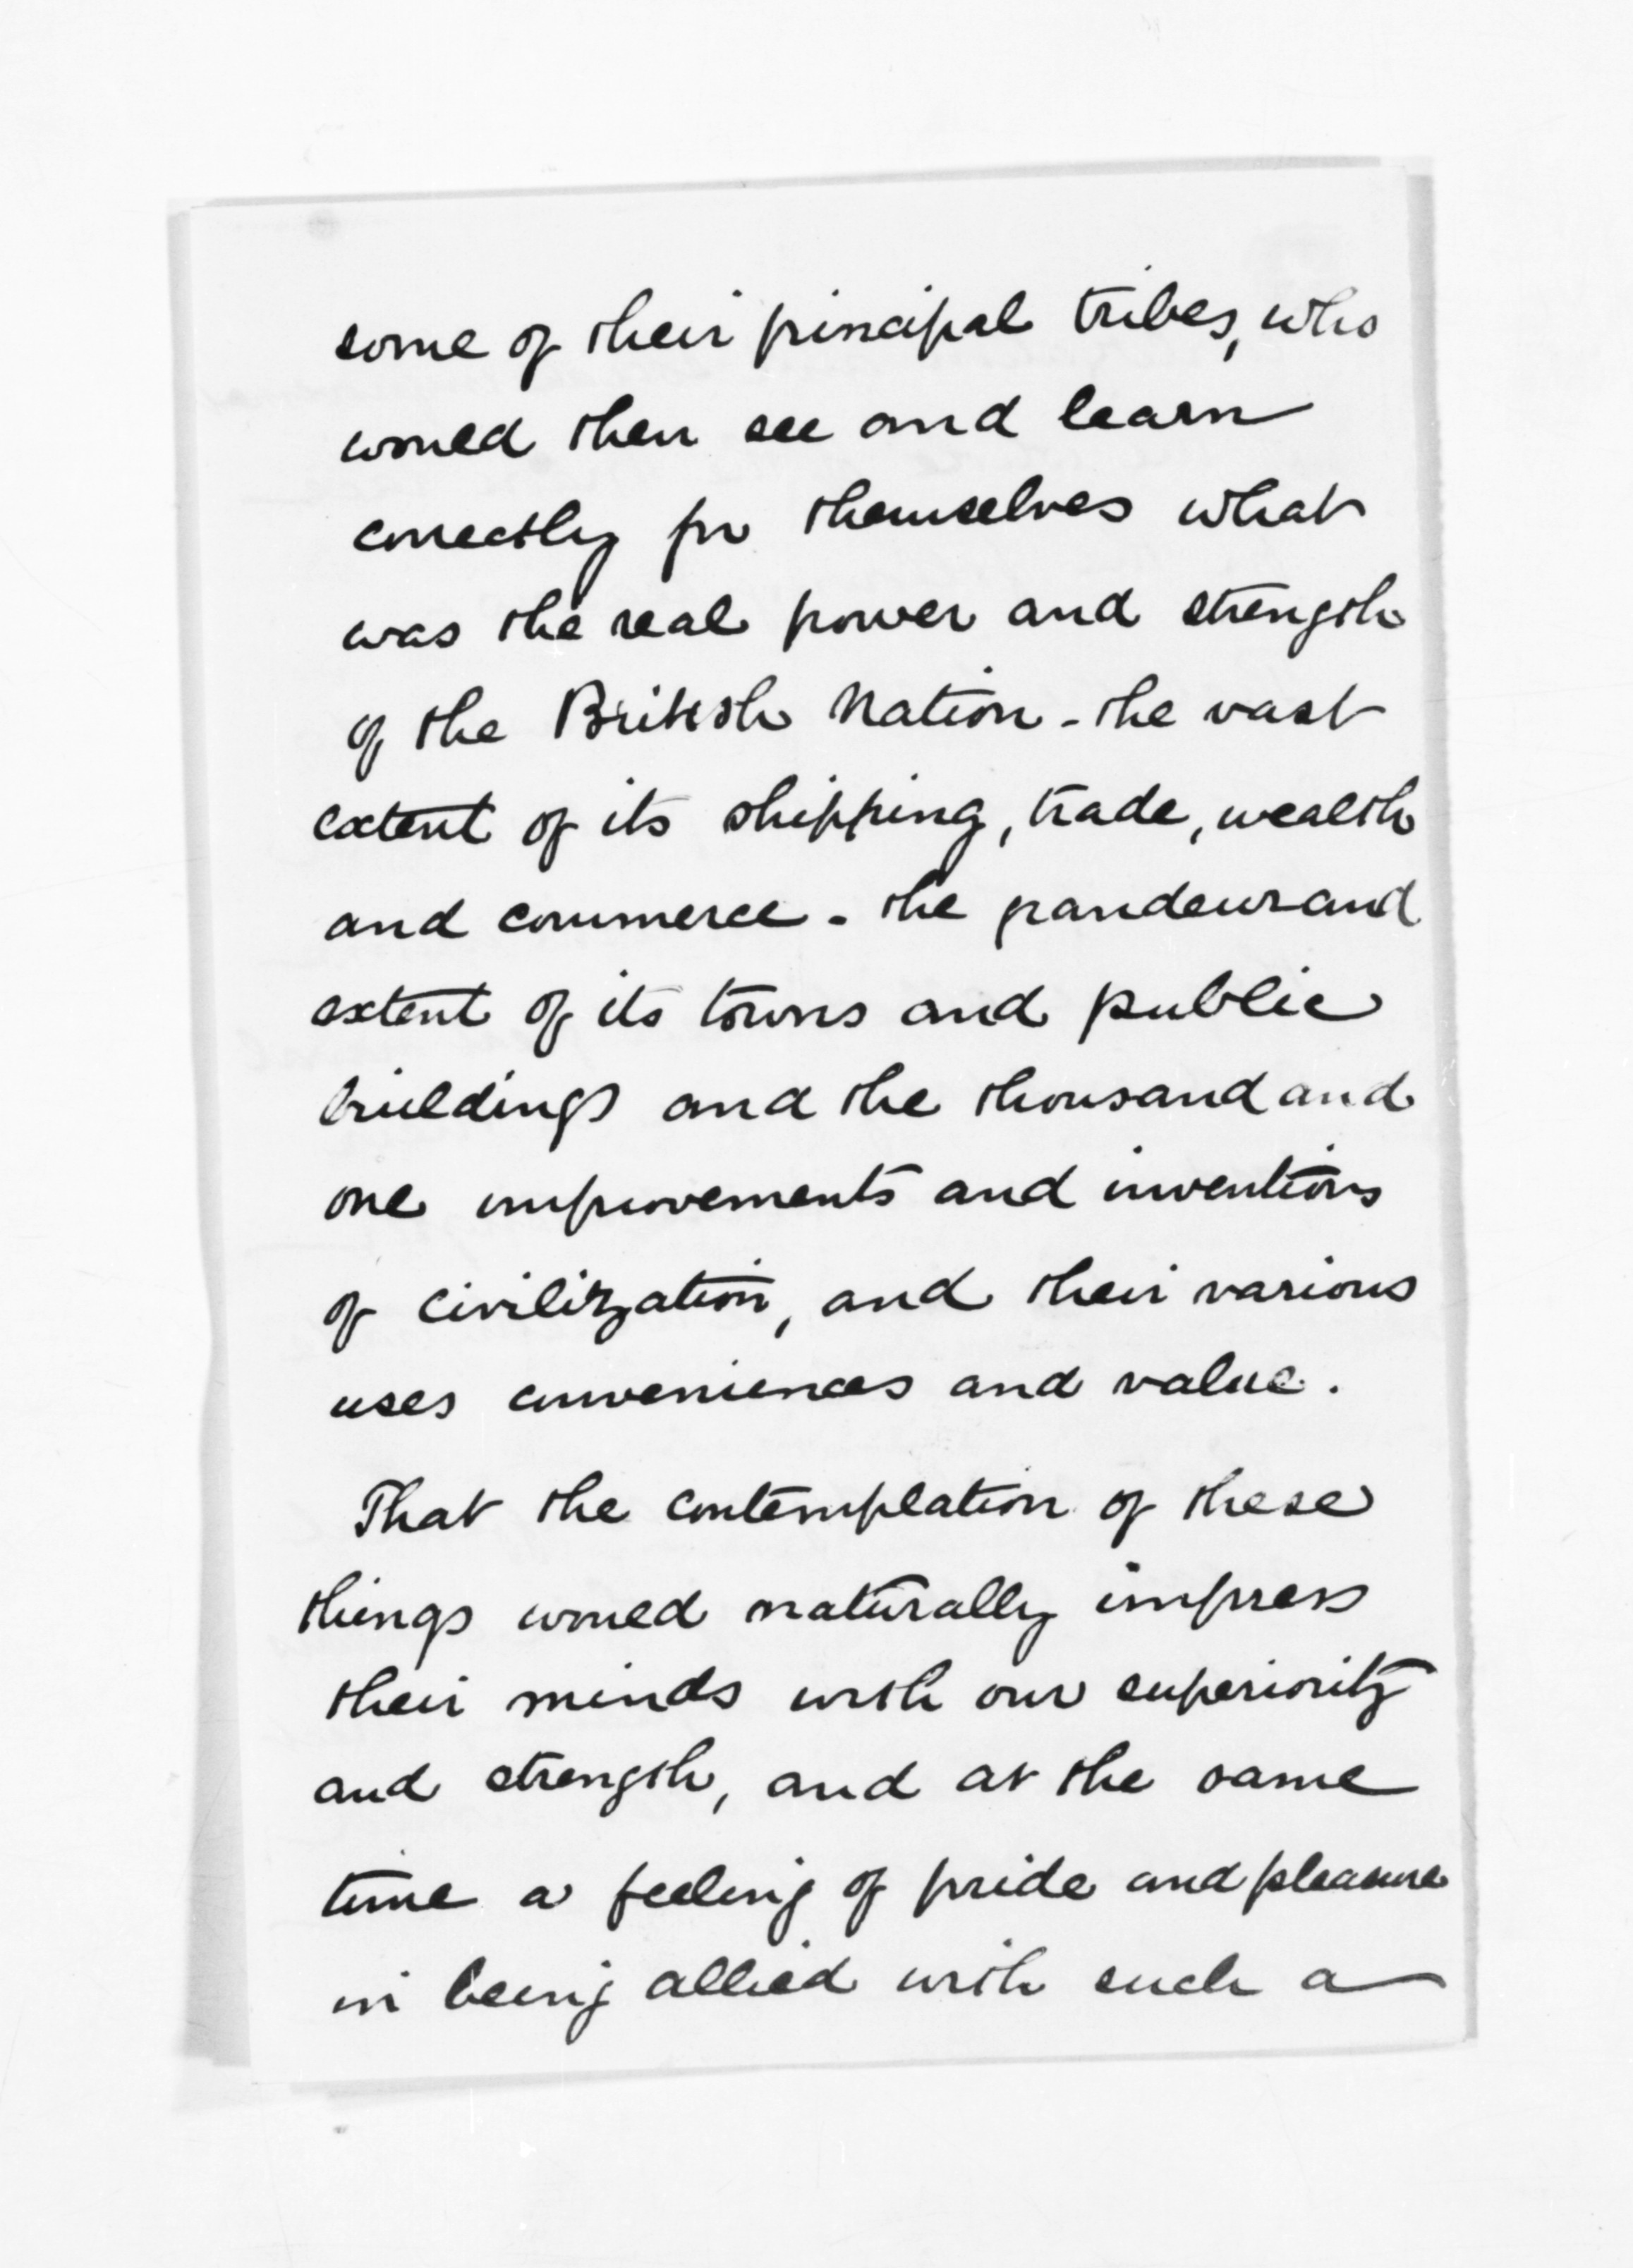 some of their principal tribes, who
would then see and learn
correctly for themselves what
was the real power and strength
of the British Nation - the vast
extent of its shipping, trade, wealth
and commerce - the grandeur and
extent of its towns and public
buildings and the thousand and
one improvements and inventions
of civilization, and their various
uses conveniences and value.
That the contemplation of these
things would naturally impress
their minds with our superiority
and strength, and at the same
time a feeling of pride and pleasure
in being allied with such a